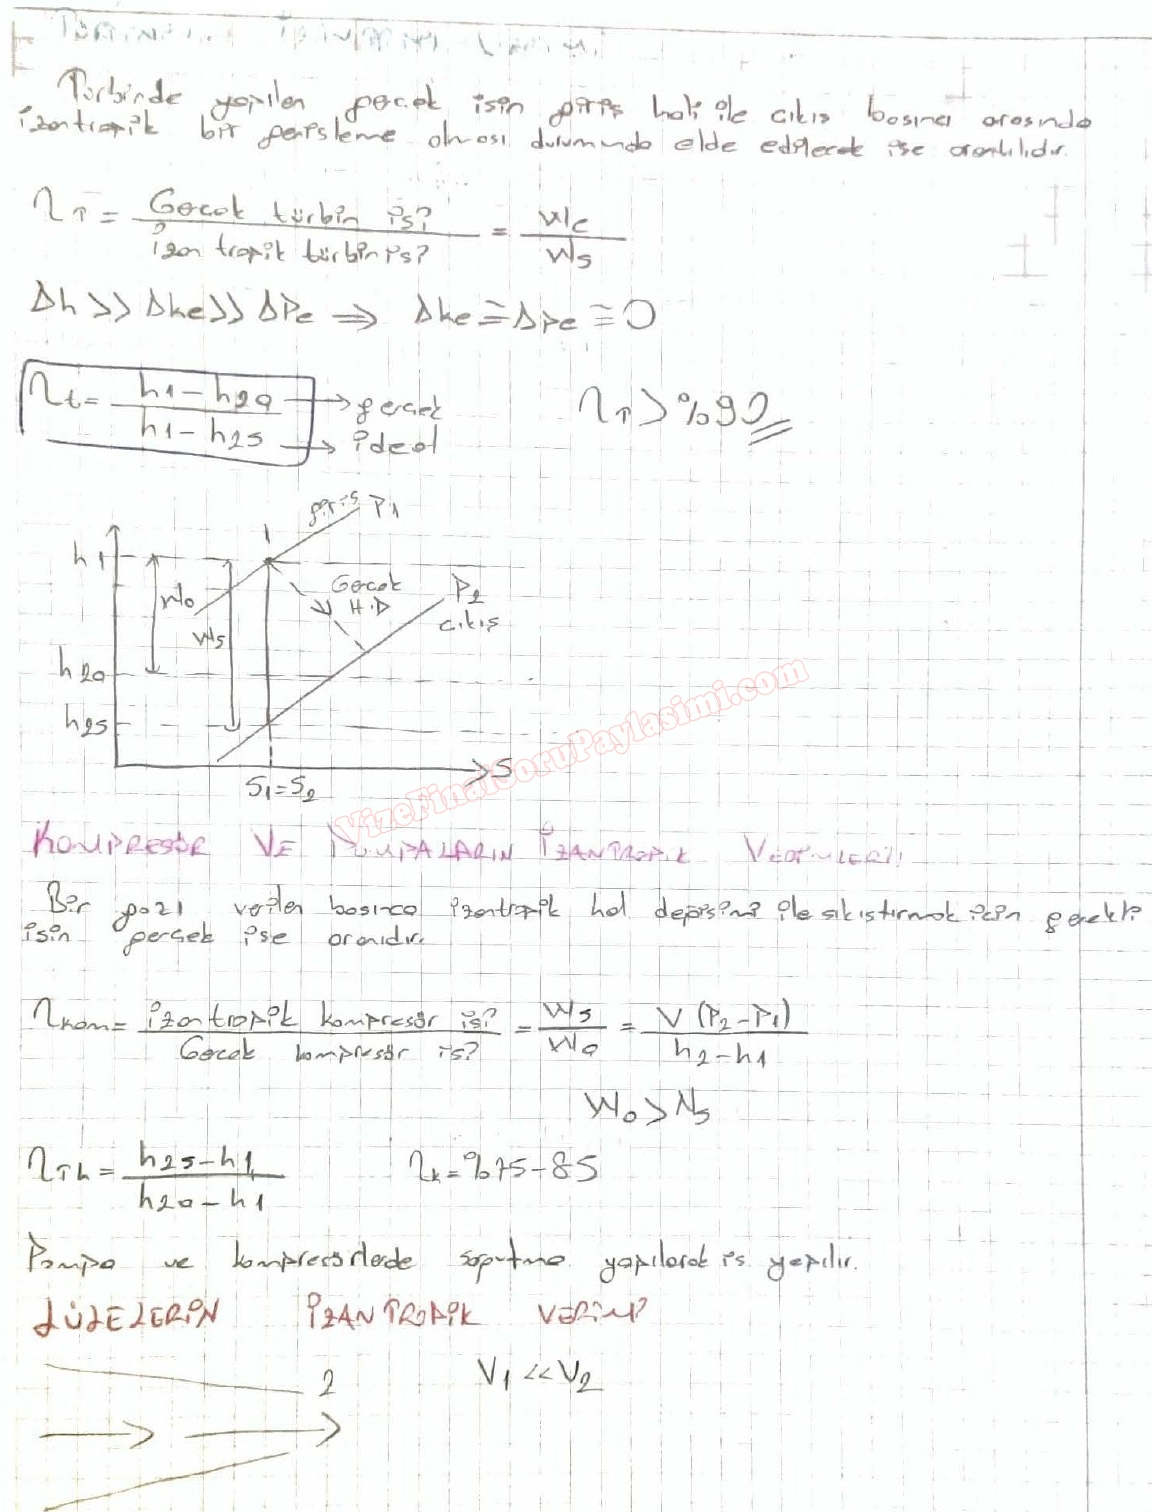 Türbinde yapılan gerçek işin giriş hali ile çıkış basıncı arasında
izantropik bir genişleme olması durumunda elde edilecek işe orantılıdır.
ηT = Gerçek türbin işi / izantropik türbin işi = wc / ws
Δh >> Δke >> Δpe ⇒ Δke ≅ Δpe ≅ 0
ηt = h1 - h2a / h1 - h2s
→ gerçek
→ ideal
ηT > %90
giriş P1
1
h1
Gerçek
H.D
P2
çıkış
wa
ws
h2a
h2s
S
S1 = S2
VizeFinalSoruPaylasimi.com
KOMPRESÖR VE POMPALARIN İZANTROPİK VERİMLERİ
Bir gazı verilen basınca izantropik hal değişimi ile sıkıştırmak için gerekli
işin gerçek işe oranıdır.
ηkom = izantropik kompresör işi / Gerçek kompresör işi = ws / wa = V (P2 - P1) / h2 - h1
Wa > Ws
h2s - h1 / h2a - h1
ηk = %75-85
Pompa ve kompresörlerde soğutma yapılarak iş yapılır.
LÜLELERİN İZANTROPİK VERİMİ
2
V1 << V2